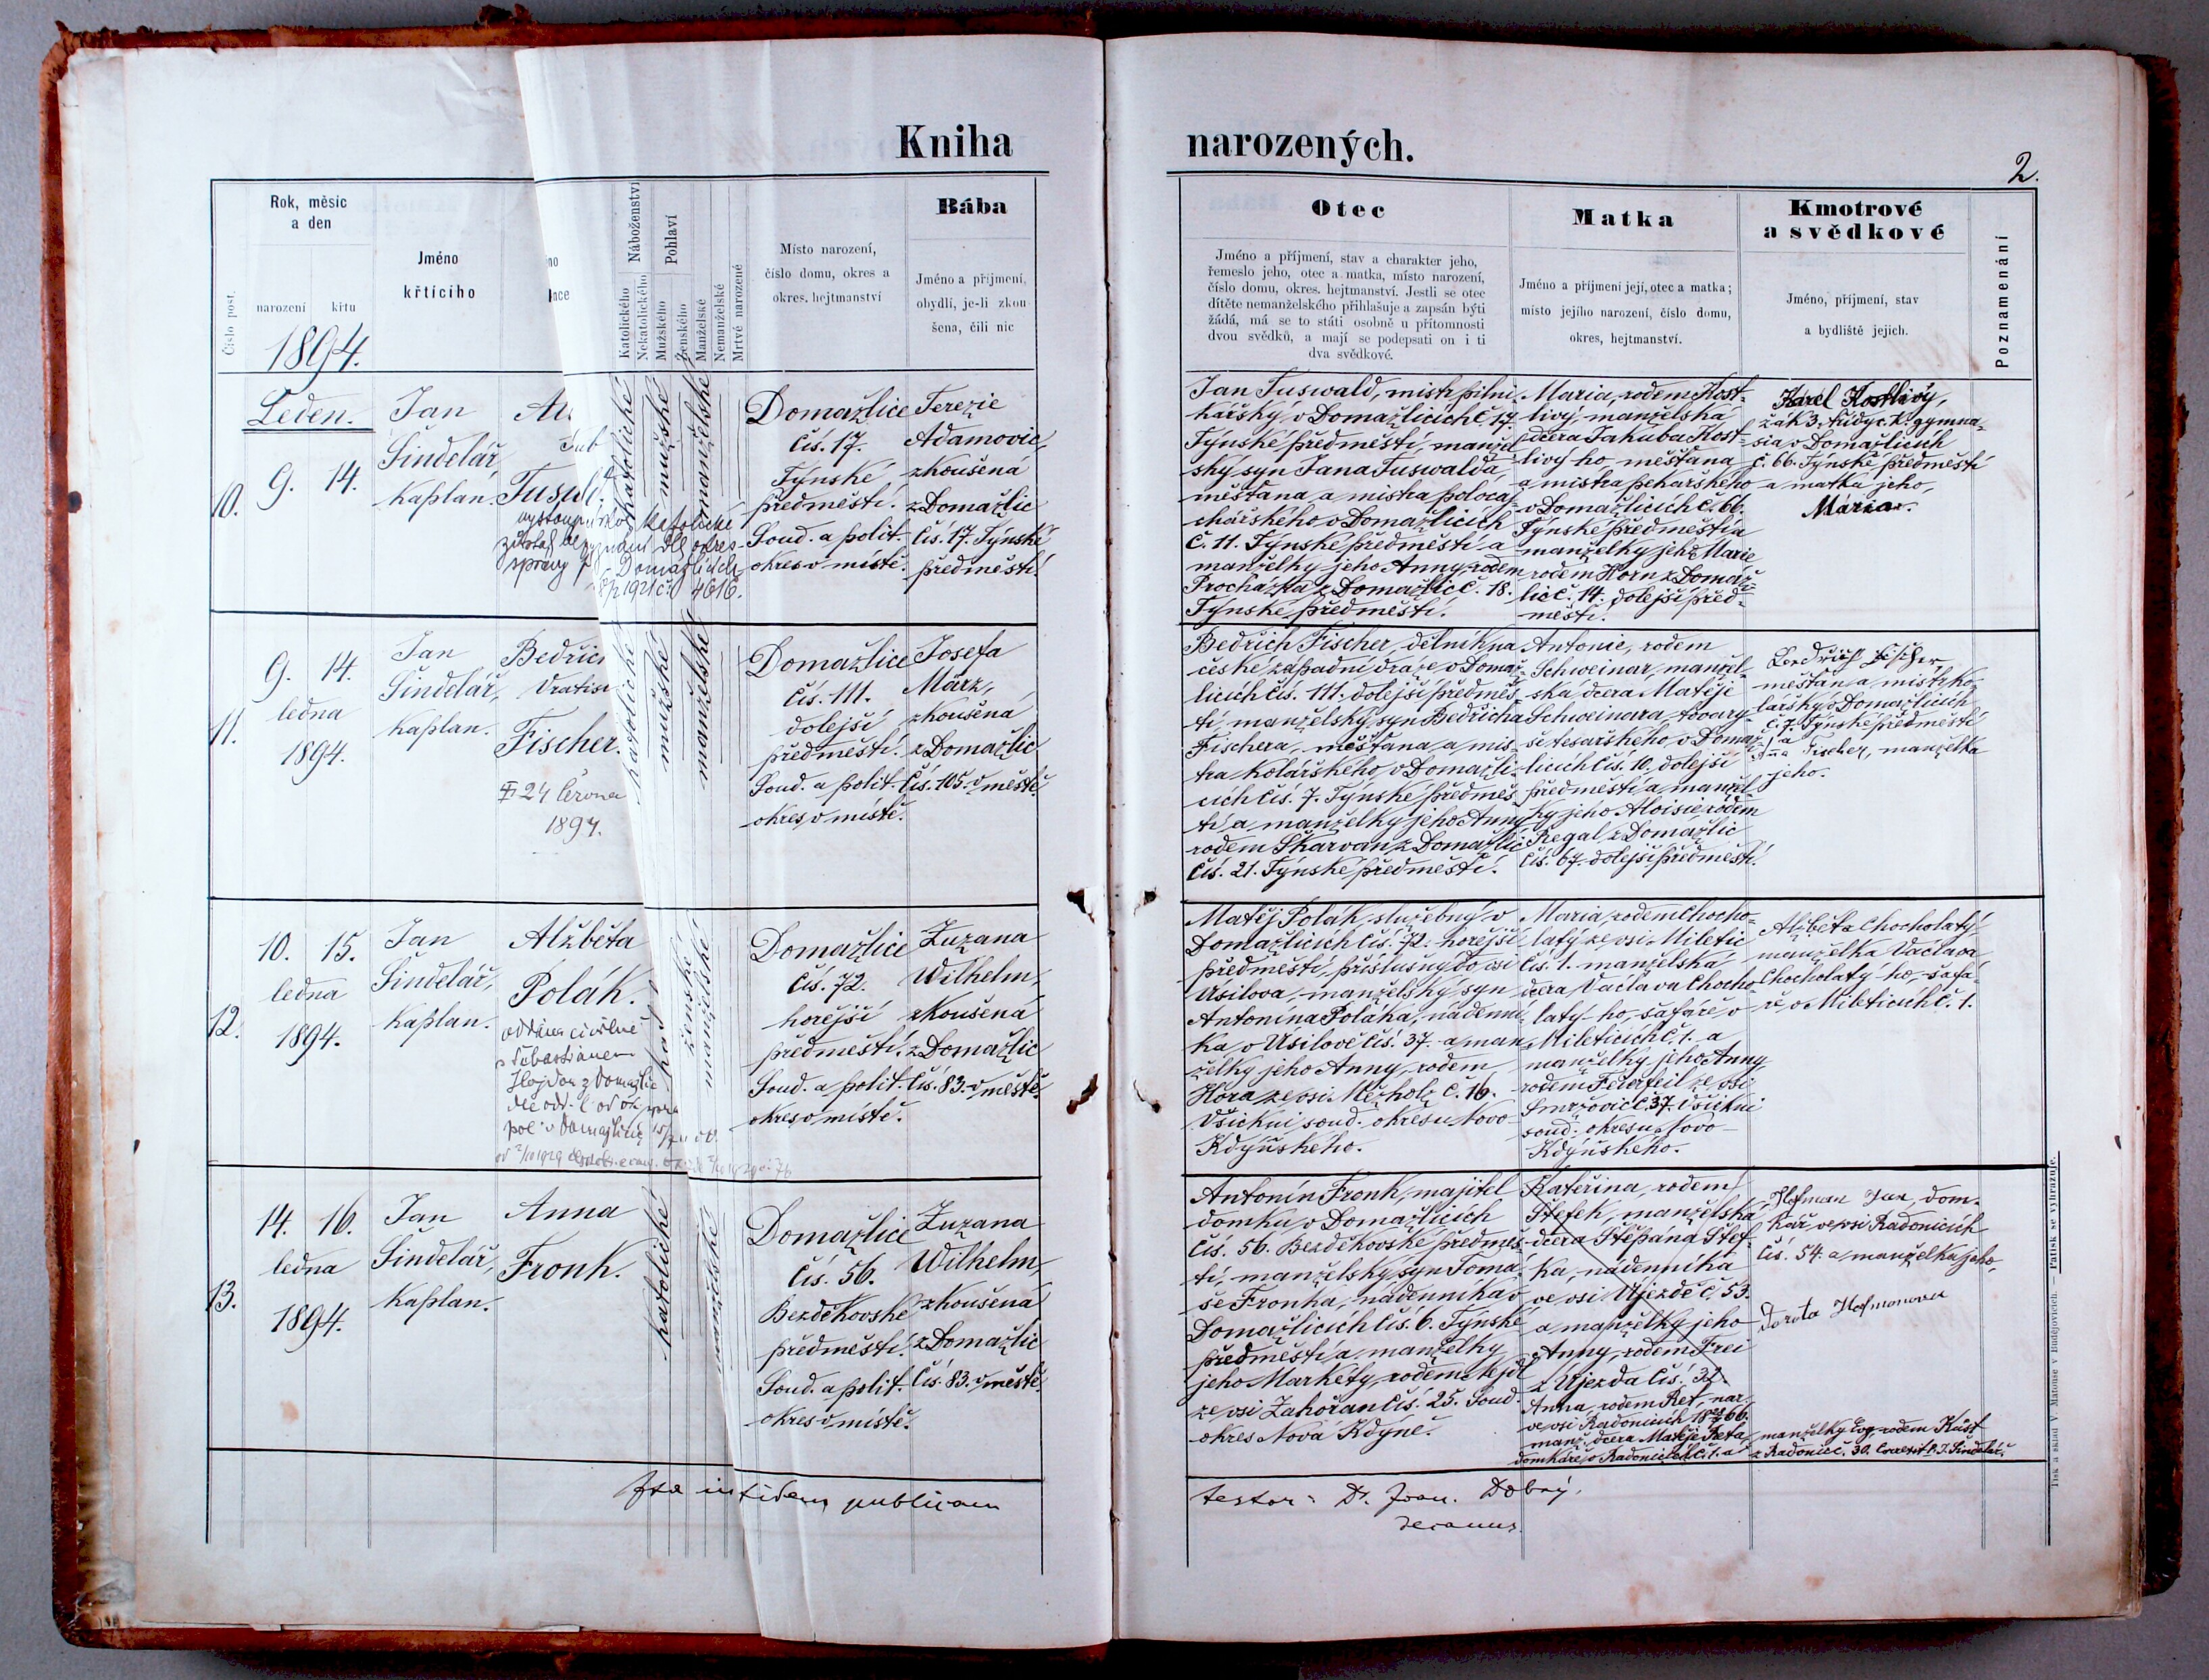 Kniha
narozených.
2.
Číslo post.
Rok, měsíc
a den
narození
křtu
1894.
Jméno
křtícího
no
nce
Náboženství
Katolického
Nekatolického
Pohlaví
Mužského
Ženského
Manželské
Nemanželské
Mrtvě narozené
Místo narození,
číslo domu, okres a
okres. hejtmanství
Bába
Jméno a příjmení,
obydlí, je-li zkou
šena, čili nic
Otec
Jméno a příjmení, stav a charakter jeho,
řemeslo jeho, otec a matka, místo narození,
číslo domu, okres. hejtmanství. Jestli se otec
dítěte nemanželského přihlašuje a zapsán býti
žádá, má se to státi osobně u přítomnosti
dvou svědků, a mají se podepsati on i ti
dva svědkové.
Matka
Jméno a příjmení její, otec a matka;
místo jejího narození, číslo domu,
okres, hejtmanství.
Kmotrové
a svědkové
Jméno, příjmení, stav
a bydliště jejich.
Poznamenání
10.
Leden.
9. 14.
Jan
Šindelář,
kaplan.
katolické
mužské
manželské
Domažlice
čís. 17.
Týnské
předměstí.
Soud. a polit.
okres v místě.
Terezie
Adamovic,
zkoušená
z Domažlic
čís. 17. Týnské
předměstí.
Jan Tuswald, mistr pilni-
kářský v Domažlicích č. 17.
Týnské předměstí, manžel-
ský syn Jana Tuswalda,
měšťana a mistra
chářského v Domažlicích
č. 11. Týnské předměstí a
manželky jeho Anny, rodem
Procházka z Domažlic č. 18.
Týnské předměstí.
Maria, rodem Kost-
livý, manželská
dcera Jakuba Kost-
livý-ho, měšťana
a mistra pekařského
v Domažlicích č. 66.
Týnské předměstí a
manželky jeho Marie
rodem Horn z Domaž-
lic č. 14. dolejší před-
městí.
Karel Kostlivý,
žák 3. třídy c. k. gymna-
sia v Domažlicích
č. 66. Týnské předměstí
a matka jeho,
Maria.
11.
9. 14.
ledna
1894.
Jan
Šindelář,
kaplan.
Bedřich
Vratisl
Fischer.
24 června
1894.
katolické
mužské
manželské
Domažlice
čís. 111.
dolejší
předměstí.
Soud. a polit.
okres v místě.
Josefa
März,
zkoušená
z Domažlic
čís. 105. v městě.
Bedřich Fischer, dělník na
české západní dráze v Domaž-
licích čís. 111. dolejší předměs-
tí, manželský syn Bedřicha
Fischera, měšťana a mis-
tra kolářského v Domažli-
cích čís. 7. Týnské předměs-
tí a manželky jeho Anny
rodem Skarvan z Domažlic
čís. 21. Týnské předměstí.
Antonie, rodem
Schweinar, manžel-
ská dcera Matěje
Schweinara, tovary-
še tesařského v Domaž-
licích čís. 10. dolejší
předměstí a manžel-
ky jeho Aloisie, rodem
Regal z Domažlic
čís. 67. dolejší předměstí.
Bedřich Fischer
měšťan a mistr ko-
lářský v Domažlicích
č. 7. Týnské předměstí
a
Anna Fischer, manželka
jeho.
12.
10. 15.
ledna
1894.
Jan
Šindelář,
kaplan.
Alžběta
Polák.
oddána civilně
s Šebastiánem
z Domažlic
ženské
manželské
Domažlice
čís. 72.
hořejší
předměstí.
Soud. a polit.
okres v místě.
Zuzana
Wilhelm,
zkoušená
z Domažlic
čís. 83. v městě.
Matěj Polák, služebný v
Domažlicích čís. 72. hořejší
předměstí, příslušný do vsi
Úsilova, manželský syn
Antonína Poláka, nádenní-
ka v Úsilově čís. 37. a man-
želky jeho Anny, rodem
Hora ze vsi Mezholz č. 16.
Všickni soud. okresu Novo-
Kdyňského.
Maria, rodem Chocho-
latý ze vsi Miletic
čís. 1. manželská
dcera Václava Chocho-
latý-ho, šafáře v
Mileticích č. 1. a
manželky jeho Anny
rodem Federfeil ze vsi
Smržovic č. 37. Všickni
soud. okresu Novo-
Kdyňského.
Alžběta Chocholatý
manželka Václava
Chocholatý-ho, šafá-
ře v Mileticích č. 1.
13.
14. 16.
ledna
1894.
Jan
Šindelář,
kaplan.
Anna
Fronk.
katolické
manželské
Domažlice
čís. 56.
Bezděkovské
předměstí.
Soud. a polit.
okres v místě.
Zuzana
Wilhelm,
zkoušená
z Domažlic
čís. 83. v městě.
Antonín Fronk, majitel
domku v Domažlicích
čís. 56. Bezděkovské předměs-
tí, manželský syn Tomá-
še Fronka, nádenníka v
Domažlicích čís. 6. Týnské
předměstí a manželky
jeho Markéty, rodem Nejdl
ze vsi Zahořan čís. 25. Soud.
okres Nová Kdýně.
Kateřina, rodem
Štefek, manželská
dcera Štěpána Štef-
ka, nádenníka
ve vsi Újezdě č. 53.
a manželky jeho
Anny, rodem Frei
z Újezda čís. 32.
Anna, rodem Ret, nar.
ve vsi Radonicích
manž. dcera Matěje Reta
domkáře v Radonicích č. 1. a
Hofman Jan, dom-
kář ve vsi Radonicích
čís. 54. a manželka jeho,
Dorota Hofmanova
manželky Evy, rodem Küst
z Radonic č. 30. Correxit P. J. Šindelář.
Ita in fidem publicam
testor: Dr. Joan. Dobrý.
decanus.
Tisk a sklad V. Matouše v Budějovicích. — Patisk se vyhrazuje.